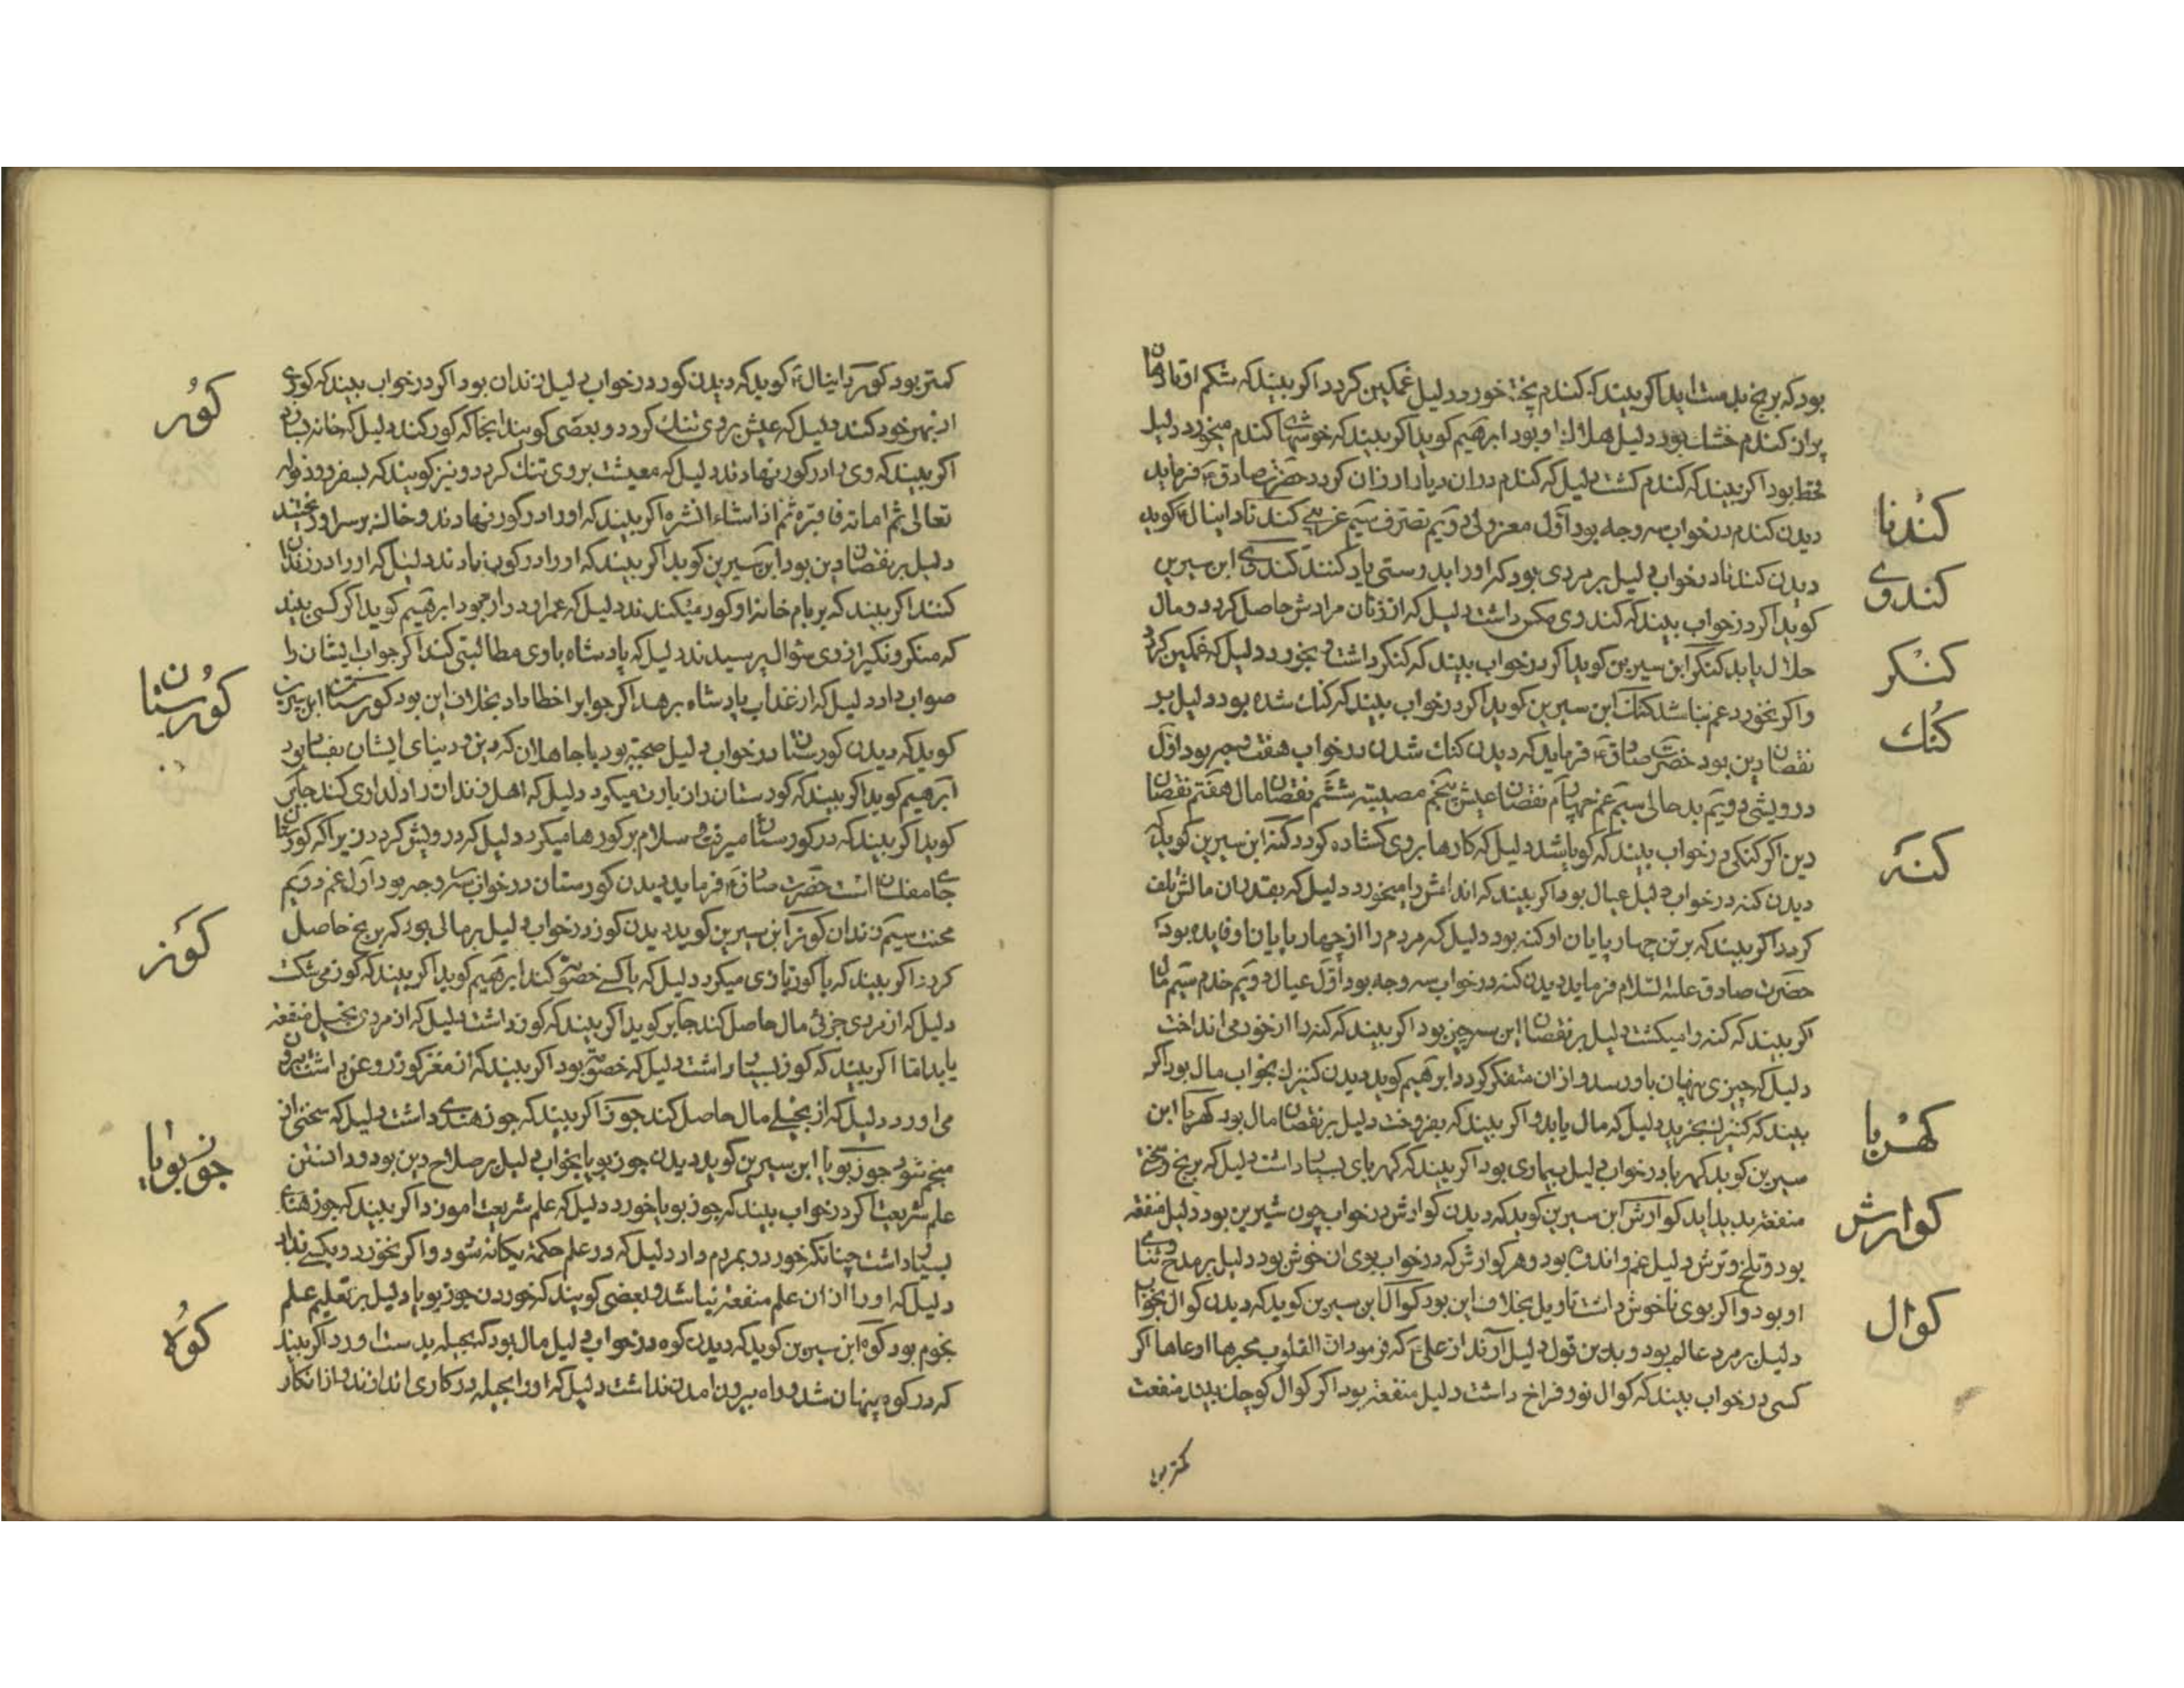 بود که برنج بدست اید اکر بیند که کندم پخته خورد دلیل غمکین کردد اکر بیند که شکم او تا دهان
پر از کندم خشک بود دلیل هلاک او بود ابرهیم کوید اکر بیند که خوشهای کندم میخورد دلیل
قحط بود اکر بیند که کندم کشت دلیل که کندم در ان دیار ارزان کردد حضرت صادق فرماید
دیدن کندم در خواب سه وجه بود اول معزولی دویم تصرف سیم غریبی کندنا دانیال کوید
دیدن کندنا در خواب دلیل بر مردی بود که او را بدرستی یاد کنند کندی ابن سیرین
کوید اکر در خواب بیند که کندوی مکس داشت دلیل که از زنان مرادش حاصل کردد و مال
حلال یابد کنکر ابن سیرین کوید اکر در خواب بیند که کنکر داشت و بخورد دلیل که غمکین کردد
و اکر نخورد غم نباشد کنک ابن سیرین کوید اکر در خواب بیند که کنک شده بود دلیل بر
نقصان دین بود حضرت صادق فرماید که دیدن کنک شدن در خواب هفت وجه بود اول
درویشی دویم بد حالی سیم غم چهارم نقصان عیش پنجم مصیبت ششم نقصان مال هفتم نقصان
دین اکر کنکی در خواب بیند که کویا شد دلیل که کارها بر وی کشاده کردد کنه ابن سیرین کوید که
دیدن کنه در خواب دلیل عیال بود اکر بیند که اندامش را میخورد دلیل که بقدر ان مالش تلف
کردد اکر بیند که بر تن چهار پایان او کنه بود دلیل که مردم را از چهار پایان او فایده بود
حضرت صادق علیه السلام فرماید دیدن کنه در خواب سه وجه بود اول عیال دویم خدم سیم مال
اکر بیند که کنه را میکشت دلیل بر نقصان این سه چیز بود اکر بیند که کنه را از خود می انداخت
دلیل که چیزی پنهان باو رسد و از ان متفکر کردد ابرهیم کوید دیدن کنیزک بخواب مال بود اکر
بیند که کنیزک بخرید دلیل که مال یابد و اکر بیند که بفروخت دلیل بر نقصان مال بود کهربا ابن
سیرین کوید کهربا در خواب دلیل بیماری بود اکر بیند که کهربای بسیار داشت دلیل که برنج و سختی
منفعت بدید اید کوارش ابن سیرین کوید که دیدن کوارش در خواب چون شیرین بود دلیل منفعت
بود و تلخ و ترش دلیل غم و اندوه بود و هر کوارش که در خواب بوی ان خوش بود دلیل بر مدح و ثنای
او بود و اکر بوی ناخوش داشت تاویل بخلاف این بود کوال ابن سیرین کوید که دیدن کوال بخواب
دلیل بر مرد عالم بود و بدین قول دلیل آرند از علی که فرمود ان القلوب اوعاها اکر
کسی در خواب بیند که کوال نو و فراخ داشت دلیل منفعت بود اکر کوال کوچک بیند منفعت
کمتر بود
کندنا
کندوی
کنکر
کنک
کنه
کهربا
کوارش
کوال
کمتر بود کور دانیال کوید که دیدن کور در خواب دلیل زندان بود اکر در خواب بیند که کوری
از بهر خود کند دلیل که عیش بر وی تنک کردد و بعضی کویند انجا که کور کند دلیل که خانه بنا
اکر بیند که وی را در کور نهادند دلیل که معیشت بر وی تنک کردد و نیز کویند که بسفر رود قوله
تعالی ثم اماته فاقبره ثم اذا شاء انشره اکر بیند که او را در کور نهادند و خاک بر سر او ریختند
دلیل بر نقصان دین بود ابن سیرین کوید اکر بیند که او را در کور نهادند دلیل که او را در زندان
کنند اکر بیند که بر بام خانه او کور میکندند دلیل که عمر او دراز بود ابرهیم کوید اکر کسی بیند
که منکر و نکیر از وی سوال پرسیدند دلیل که پادشاه با وی مطالبتی کند اکر جواب ایشان را
صواب داد دلیل که از عذاب پادشاه برهد اکر جواب خطا داد بخلاف این بود کورستان ابن سیرین
کوید که دیدن کورستان در خواب دلیل صحبت بود با جاهلان که دین و دنیای ایشان بفساد بود
ابرهیم کوید اکر بیند که کورستان را زیارت میکرد دلیل که اهل زندان را دلداری کند جابر
کوید اکر بیند که در کورستان میرفت و سلام بر کورها میکرد دلیل که درویش کردد زیرا که کورستان
جای مفلسان است حضرت صادق فرماید دیدن کورستان در خواب سه وجه بود اول غم دویم
محنت سیم زندان کوز ابن سیرین کوید دیدن کوز در خواب دلیل بر مالی بود که برنج حاصل
کردد اکر بیند که با کوز بازی میکرد دلیل که با کسی خصومت کند ابرهیم کوید اکر بیند که کوز می شکست
دلیل که از مردی جزئی مال حاصل کند جابر کوید اکر بیند که کوز داشت دلیل که از مردی بخیل منفعت
یابد اما اکر بیند که کوز بسیار داشت دلیل که خصومت بود اکر بیند که از مغز کوز روغن داشت بیرون
می اورد دلیل که از بخیلی مال حاصل کند جوز اکر بیند که جوز هندی داشت دلیل که سخنی از
منجم شنود جوز بویا ابن سیرین کوید دیدن جوز بویا بخواب دلیل بر صلاح دین بود و دانستن
علم شریعت اکر در خواب بیند که جوز بویا خورد دلیل که علم شریعت اموزد اکر بیند که جوز هندی
بسیار داشت چنانکه خورد و بمردم داد دلیل که در علم حکمت یکانه شود و اکر نخورد و بکسی نداد
دلیل که او را از ان علم منفعت نباشد و بعضی کویند که خوردن جوز بویا دلیل بر تعلیم علم
نجوم بود کوه ابن سیرین کوید که دیدن کوه در خواب دلیل مال بود که بحیله بدست اورد اکر بیند
که در کوه پنهان شد و راه بیرون امدن نداشت دلیل که او را بحیله در کاری اندازند و از انکار
کور
کورستان
کوز
جوز بویا
کوه